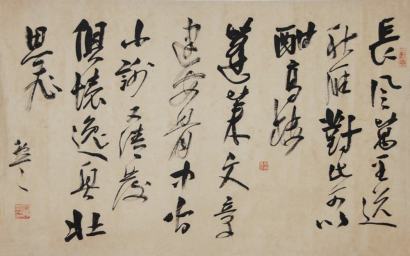 長風萬里送
秋雁對此可以
酣高樓
蓬萊文章
建安骨中間
小謝又清發
俱懷逸興壯
思飛